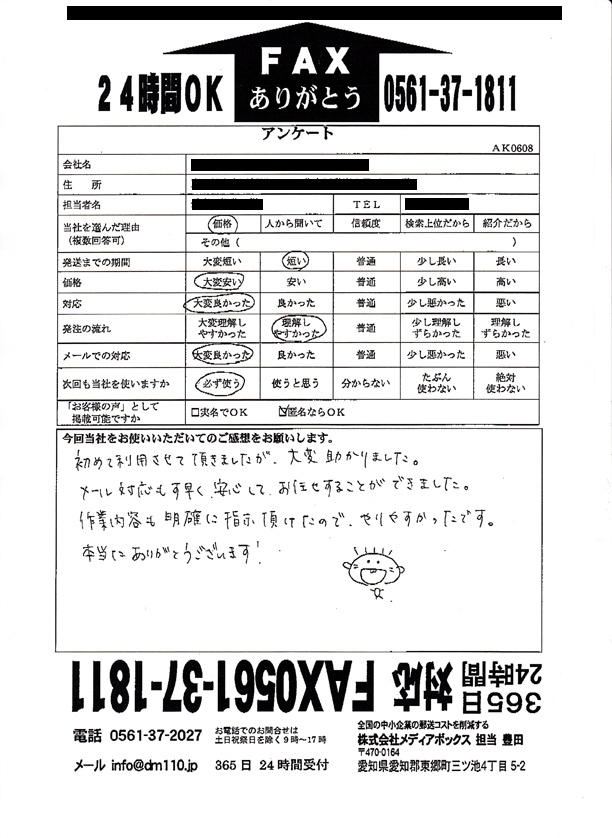 FAX
ありがとう
24時間OK
0561-37-1811
アンケート
AK0608
会社名
住 所
担当者名 TEL
当社を選んだ理由 (複数回答可) 価格 人から聞いて 信頼度 検索上位だから 紹介だから
その他( )
発送までの期間 大変短い 短い 普通 少し長い 長い
価格 大変安い 安い 普通 少し高い 高い
対応 大変良かった 良かった 普通 少し悪かった 悪い
発注の流れ 大変理解しやすかった 理解しやすかった 普通 少し理解しずらかった 理解しずらかった
メールでの対応 大変良かった 良かった 普通 少し悪かった 悪い
次回も当社を使いますか 必ず使う 使うと思う 分からない たぶん使わない 絶対使わない
「お客様の声」として掲載可能ですか □実名でOK ☑匿名ならOK
今回当社をお使いいただいてのご感想をお願いします。
初めて利用させて頂きましたが、大変助かりました。
メール対応も す早く、安心して、お任せすることができました。
作業内容も明確に指示頂けたので、やりやすかったです。
本当にありがとうございます!
365日
24時間
対応 FAX0561-37-1811
電話 0561-37-2027
お電話でのお問合せは
土日祝祭日を除く9時~17時
メール info@dm110.jp 365日 24時間受付
全国の中小企業の郵送コストを削減する
株式会社メディアボックス 担当 豊田
〒470-0164
愛知県愛知郡東郷町三ツ池4丁目5-2